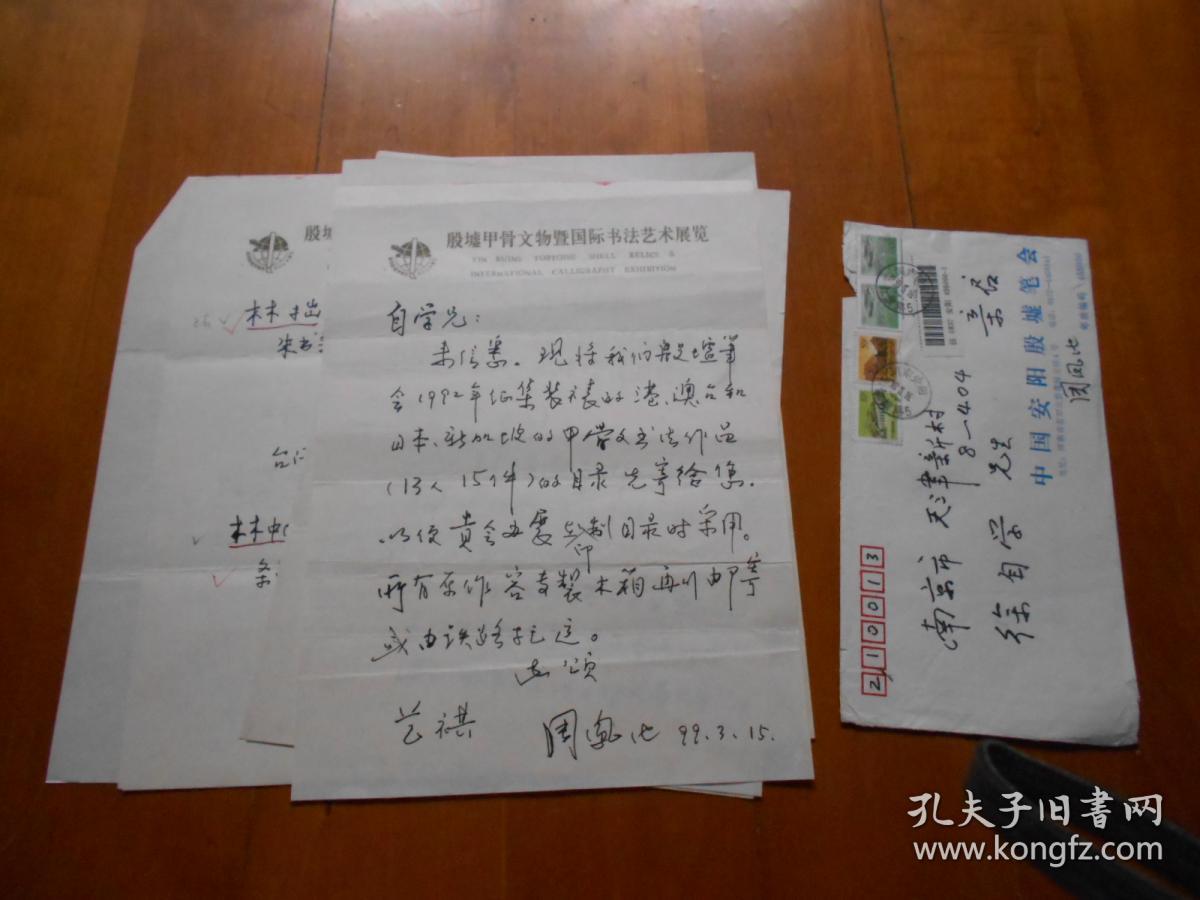 殷墟甲骨文物暨国际书法艺术展览
YIN RUINS TORTOISE SHELL RELICS &
INTERNATIONAL CALLIGRAPHY EXHIBITION
自学兄：
来信悉。现将我们殷墟筆
会1992年征集装裱的港、澳、台和
日本、新加坡的甲骨文书法作品
(13人 15件)的目录先寄给您，
以便贵会布展与印制目录时采用。
所有原作容专製木箱再以邮寄
或由铁路托运。
此颂
艺祺
周凤池 99.3.15.
殷墟
林
林中
210013
南京市 天津新村
8－404
徐自学 先生
章君
中国安阳殷墟笔会
周凤池
孔夫子旧書网
www.kongfz.com